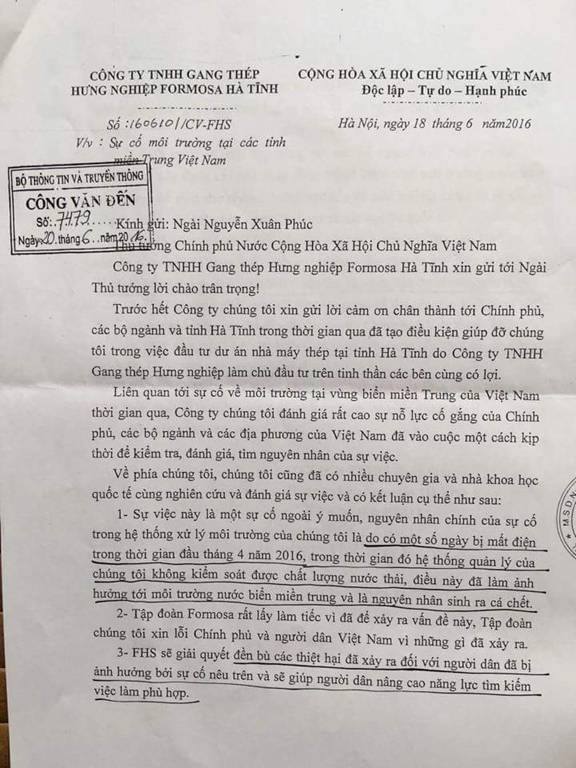 CÔNG TY TNHH GANG THÉP
HƯNG NGHIỆP FORMOSA HÀ TĨNH
CỘNG HÒA XÃ HỘI CHỦ NGHĨA VIỆT NAM
Độc lập – Tự do – Hạnh phúc
Số :160610//CV-FHS
Hà Nội, ngày 18 tháng 6 năm2016
V/v : Sự cố môi trường tại các tỉnh
miền Trung Việt Nam
BỘ THÔNG TIN VÀ TRUYỀN THÔNG
CÔNG VĂN ĐẾN
Số:.7479.......
Ngày 20.tháng 6..năm 2016.
Kính gửi: Ngài Nguyễn Xuân Phúc
Thủ tướng Chính phủ Nước Cộng Hòa Xã Hội Chủ Nghĩa Việt Nam
Công ty TNHH Gang thép Hưng nghiệp Formosa Hà Tĩnh xin gửi tới Ngài
Thủ tướng lời chào trân trọng!
Trước hết Công ty chúng tôi xin gửi lời cảm ơn chân thành tới Chính phủ,
các bộ ngành và tỉnh Hà Tĩnh trong thời gian qua đã tạo điều kiện giúp đỡ chúng
tôi trong việc đầu tư dự án nhà máy thép tại tỉnh Hà Tĩnh do Công ty TNHH
Gang thép Hưng nghiệp làm chủ đầu tư trên tinh thần các bên cùng có lợi.
Liên quan tới sự cố về môi trường tại vùng biển miền Trung của Việt Nam
thời gian qua, Công ty chúng tôi đánh giá rất cao sự nỗ lực cố gắng của Chính
phủ, các bộ ngành và các địa phương của Việt Nam đã vào cuộc một cách kịp
thời để kiểm tra, đánh giá, tìm nguyên nhân của sự việc.
Về phía chúng tôi, chúng tôi cũng đã có nhiều chuyên gia và nhà khoa học
quốc tế cùng nghiên cứu và đánh giá sự việc và có kết luận cụ thể như sau:
1- Sự việc này là một sự cố ngoài ý muốn, nguyên nhân chính của sự cố
trong hệ thống xử lý môi trường của chúng tôi là do có một số ngày bị mất điện
trong thời gian đầu tháng 4 năm 2016, trong thời gian đó hệ thống quản lý của
chúng tôi không kiểm soát được chất lượng nước thải, điều này đã làm ảnh
hưởng tới môi trường nước biển miền trung và là nguyên nhân sinh ra cá chết.
2- Tập đoàn Formosa rất lấy làm tiếc vì đã để xảy ra vấn đề này, Tập đoàn
chúng tôi xin lỗi Chính phủ và người dân Việt Nam vì những gì đã xảy ra.
3- FHS sẽ giải quyết đền bù các thiệt hại đã xảy ra đối với người dân đã bị
ảnh hưởng bới sự cố nêu trên và sẽ giúp người dân nâng cao năng lực tìm kiếm
việc làm phù hợp.
★ M.S.D.N